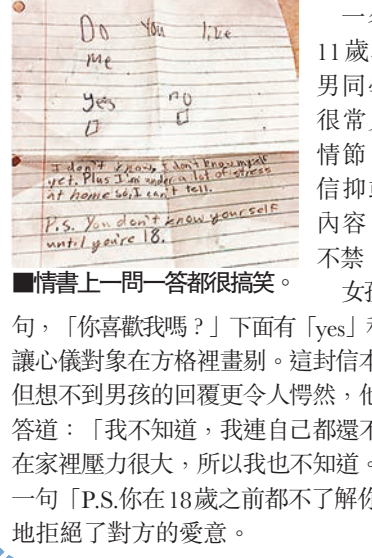 Do You like
me
yes no
I don't know, I don't know myself
yet. Plus I'm under a lot of stress
at home so, I can't tell.
P.S. You don't know yourself
until you're 18.
■情書上一問一答都很搞笑。
一
11歲
男同
很常
情節
信抑
內容
不禁
女孩
句，「你喜歡我嗎？」下面有「yes」
讓心儀對象在方格裡畫剔。這封信本
但想不到男孩的回覆更令人愕然，他
答道：「我不知道，我連自己都還不
在家裡壓力很大，所以我也不知道。
一句「P.S.你在18歲之前都不了解你
地拒絕了對方的愛意。